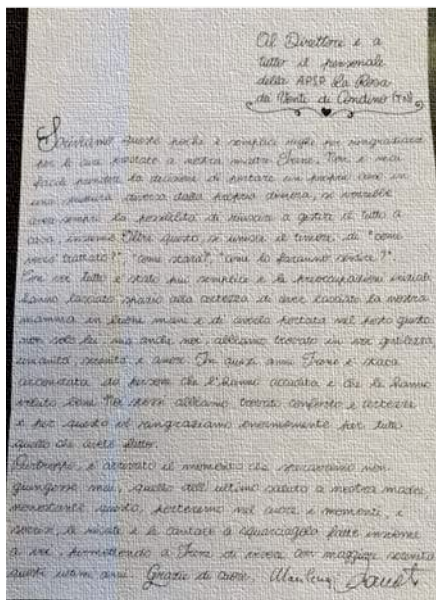 Al Direttore e a
tutto il personale
della APSP La Rosa
dei Venti di Condino (TN)
Scriviamo queste poche e semplici righe per ringraziarvi
per le cure prestate a nostra madre Irene. Non è mai
facile prendere la decisione di portare un proprio caro in
una struttura diversa dalla propria dimora, si vorrebbe
avere sempre la possibilità di riuscire a gestire il tutto a
casa, insieme. Oltre questo, si unisce il timore di "come
verrà trattata?", "come starà?", "come la faranno sentire?".
Con voi tutto è stato più semplice e le preoccupazioni iniziali
hanno lasciato spazio alla certezza di aver lasciato la nostra
mamma in buone mani e di averla portata nel posto giusto
non solo lei ma anche noi, abbiamo trovato in voi gentilezza,
umanità, serenità e amore. In questi anni Irene è stata
circondata da persone che l'hanno accudita e che le hanno
voluto bene. Noi stessi abbiamo trovato conforto e certezze
e per questo vi ringraziamo enormemente per tutto
quello che avete fatto.
Purtroppo, è arrivato il momento che speravamo non
giungesse mai, quello dell'ultimo saluto a nostra madre,
nonostante questo, porteremo nel cuore i momenti, i
sorrisi, le risate e le cantate a squarciagola fatte insieme
a voi, permettendo a Irene di vivere con maggiore serenità
questi ultimi anni. Grazie di cuore,